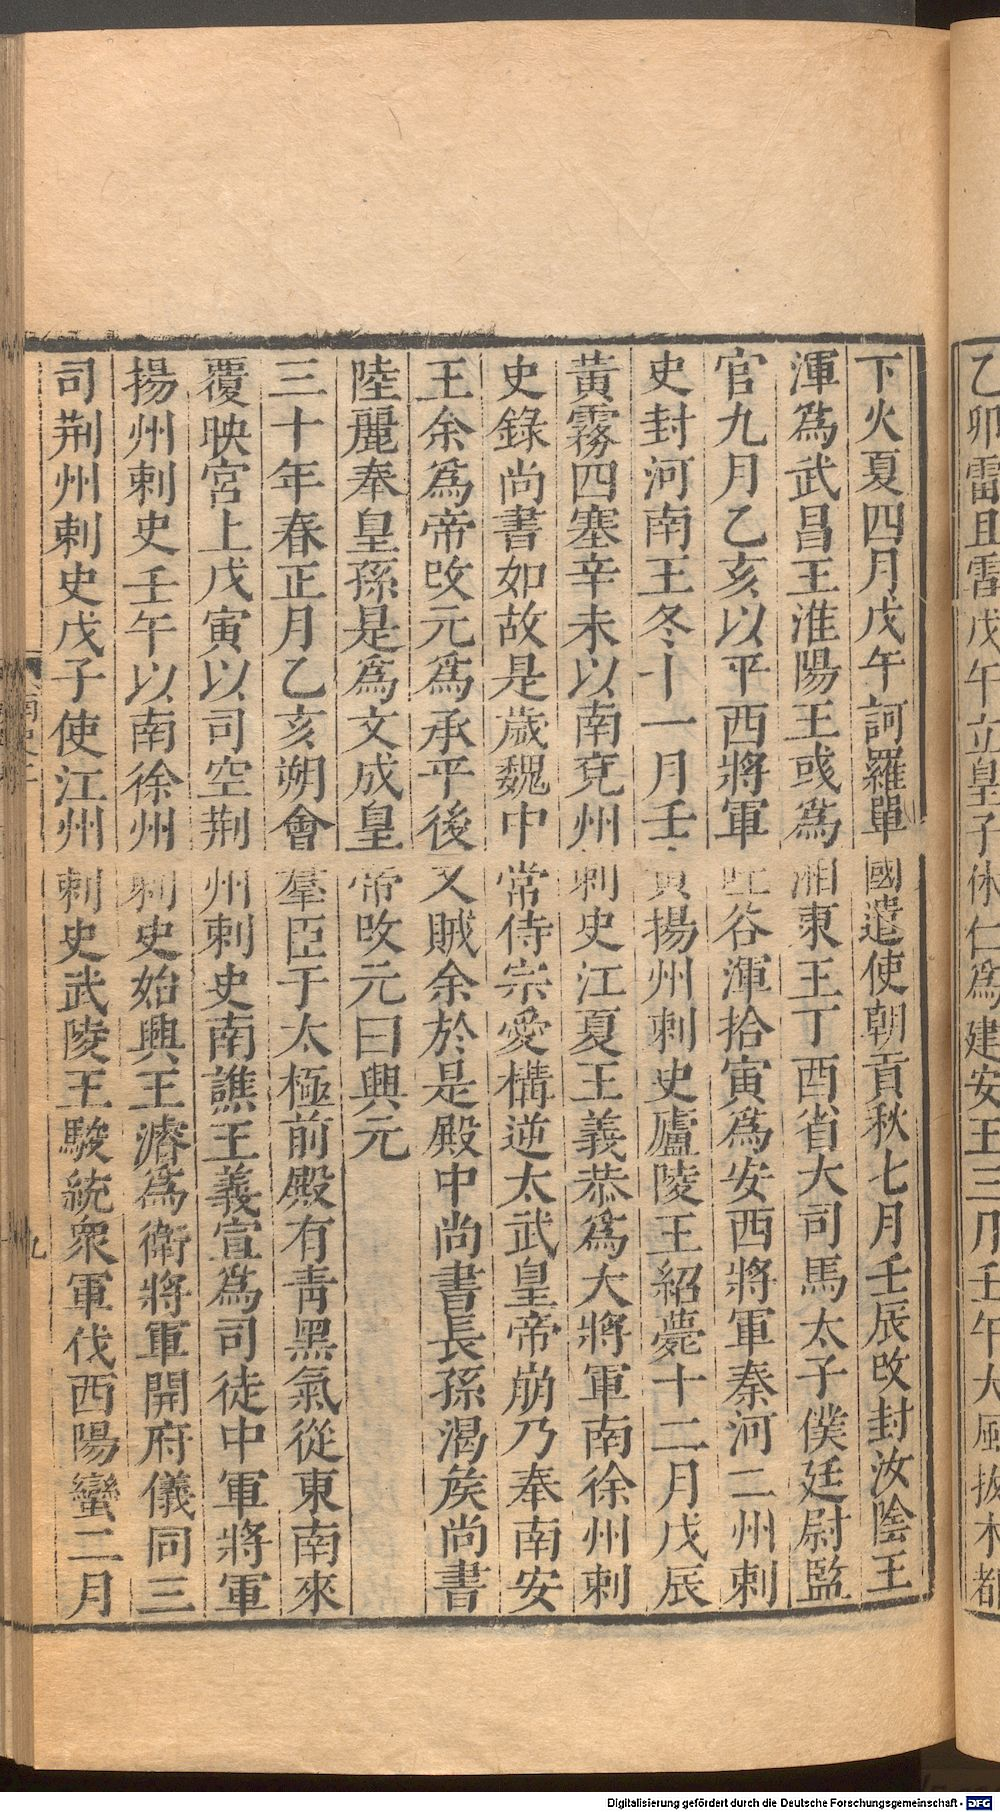 乙卯雷且雪戊午立皇子休仁爲建安王三月壬午大風拔木都
下火夏四月戊午訶羅單國遣使朝貢秋七月壬辰攺封汝陰王
渾爲武昌王淮陽王彧爲湘東王丁酉省大司馬太子僕廷尉監
官九月乙亥以平西將軍吐谷渾拾寅爲安西將軍秦河二州刺
史封河南王冬十一月壬寅揚州刺史廬陵王紹薨十二月戊辰
黃霧四塞辛未以南兗州刺史江夏王義恭爲大將軍南徐州刺
史錄尚書如故是歲魏中常侍宗愛構逆太武皇帝崩乃奉南安
王余爲帝攺元爲承平後又賊余於是殿中尚書長孫渴矦尚書
陸麗奉皇孫是爲文成皇帝攺元曰興元
三十年春正月乙亥朔會羣臣于太極前殿有靑黑氣從東南來
覆映宮上戊寅以司空荆州刺史南譙王義宣爲司徒中軍將軍
揚州刺史壬午以南徐州刺史始興王濬爲衛將軍開府儀同三
司荆州刺史戊子使江州刺史武陵王駿統衆軍伐西陽蠻二月
九
Digitalisierung gefördert durch die Deutsche Forschungsgemeinschaft - DFG